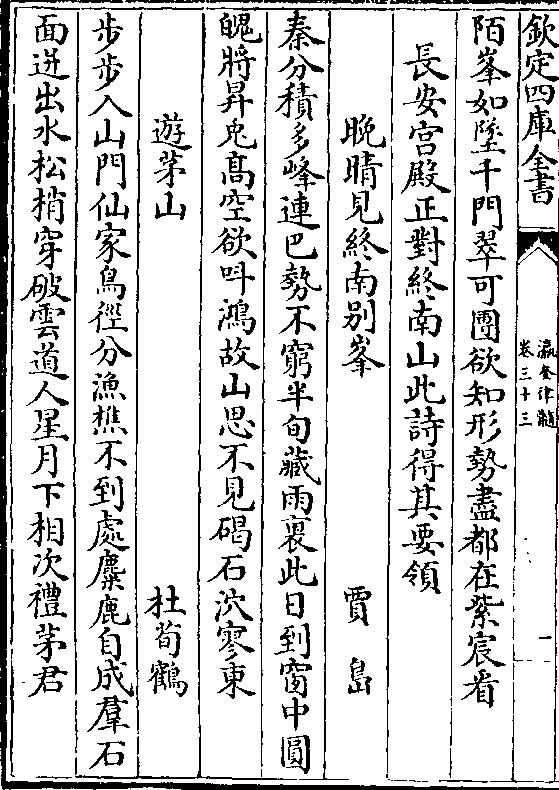 欽定四庫全書
瀛奎律髓
卷三十三
一
陌峯如墜千門翠可團欲知形勢盡都在紫宸看
長安宫殿正對終南山此詩得其要領
晚晴見終南别峯 賈島
秦分積多峰連巴勢不窮半旬藏雨裏此日到窗中圓
魄將昇兎髙空欲呌鴻故山思不見碣石泬寥東
遊茅山 杜荀鶴
步步入山門仙家鳥徑分漁樵不到處麋鹿自成羣石
面迸出水松梢穿破雲道人星月下相次禮茅君